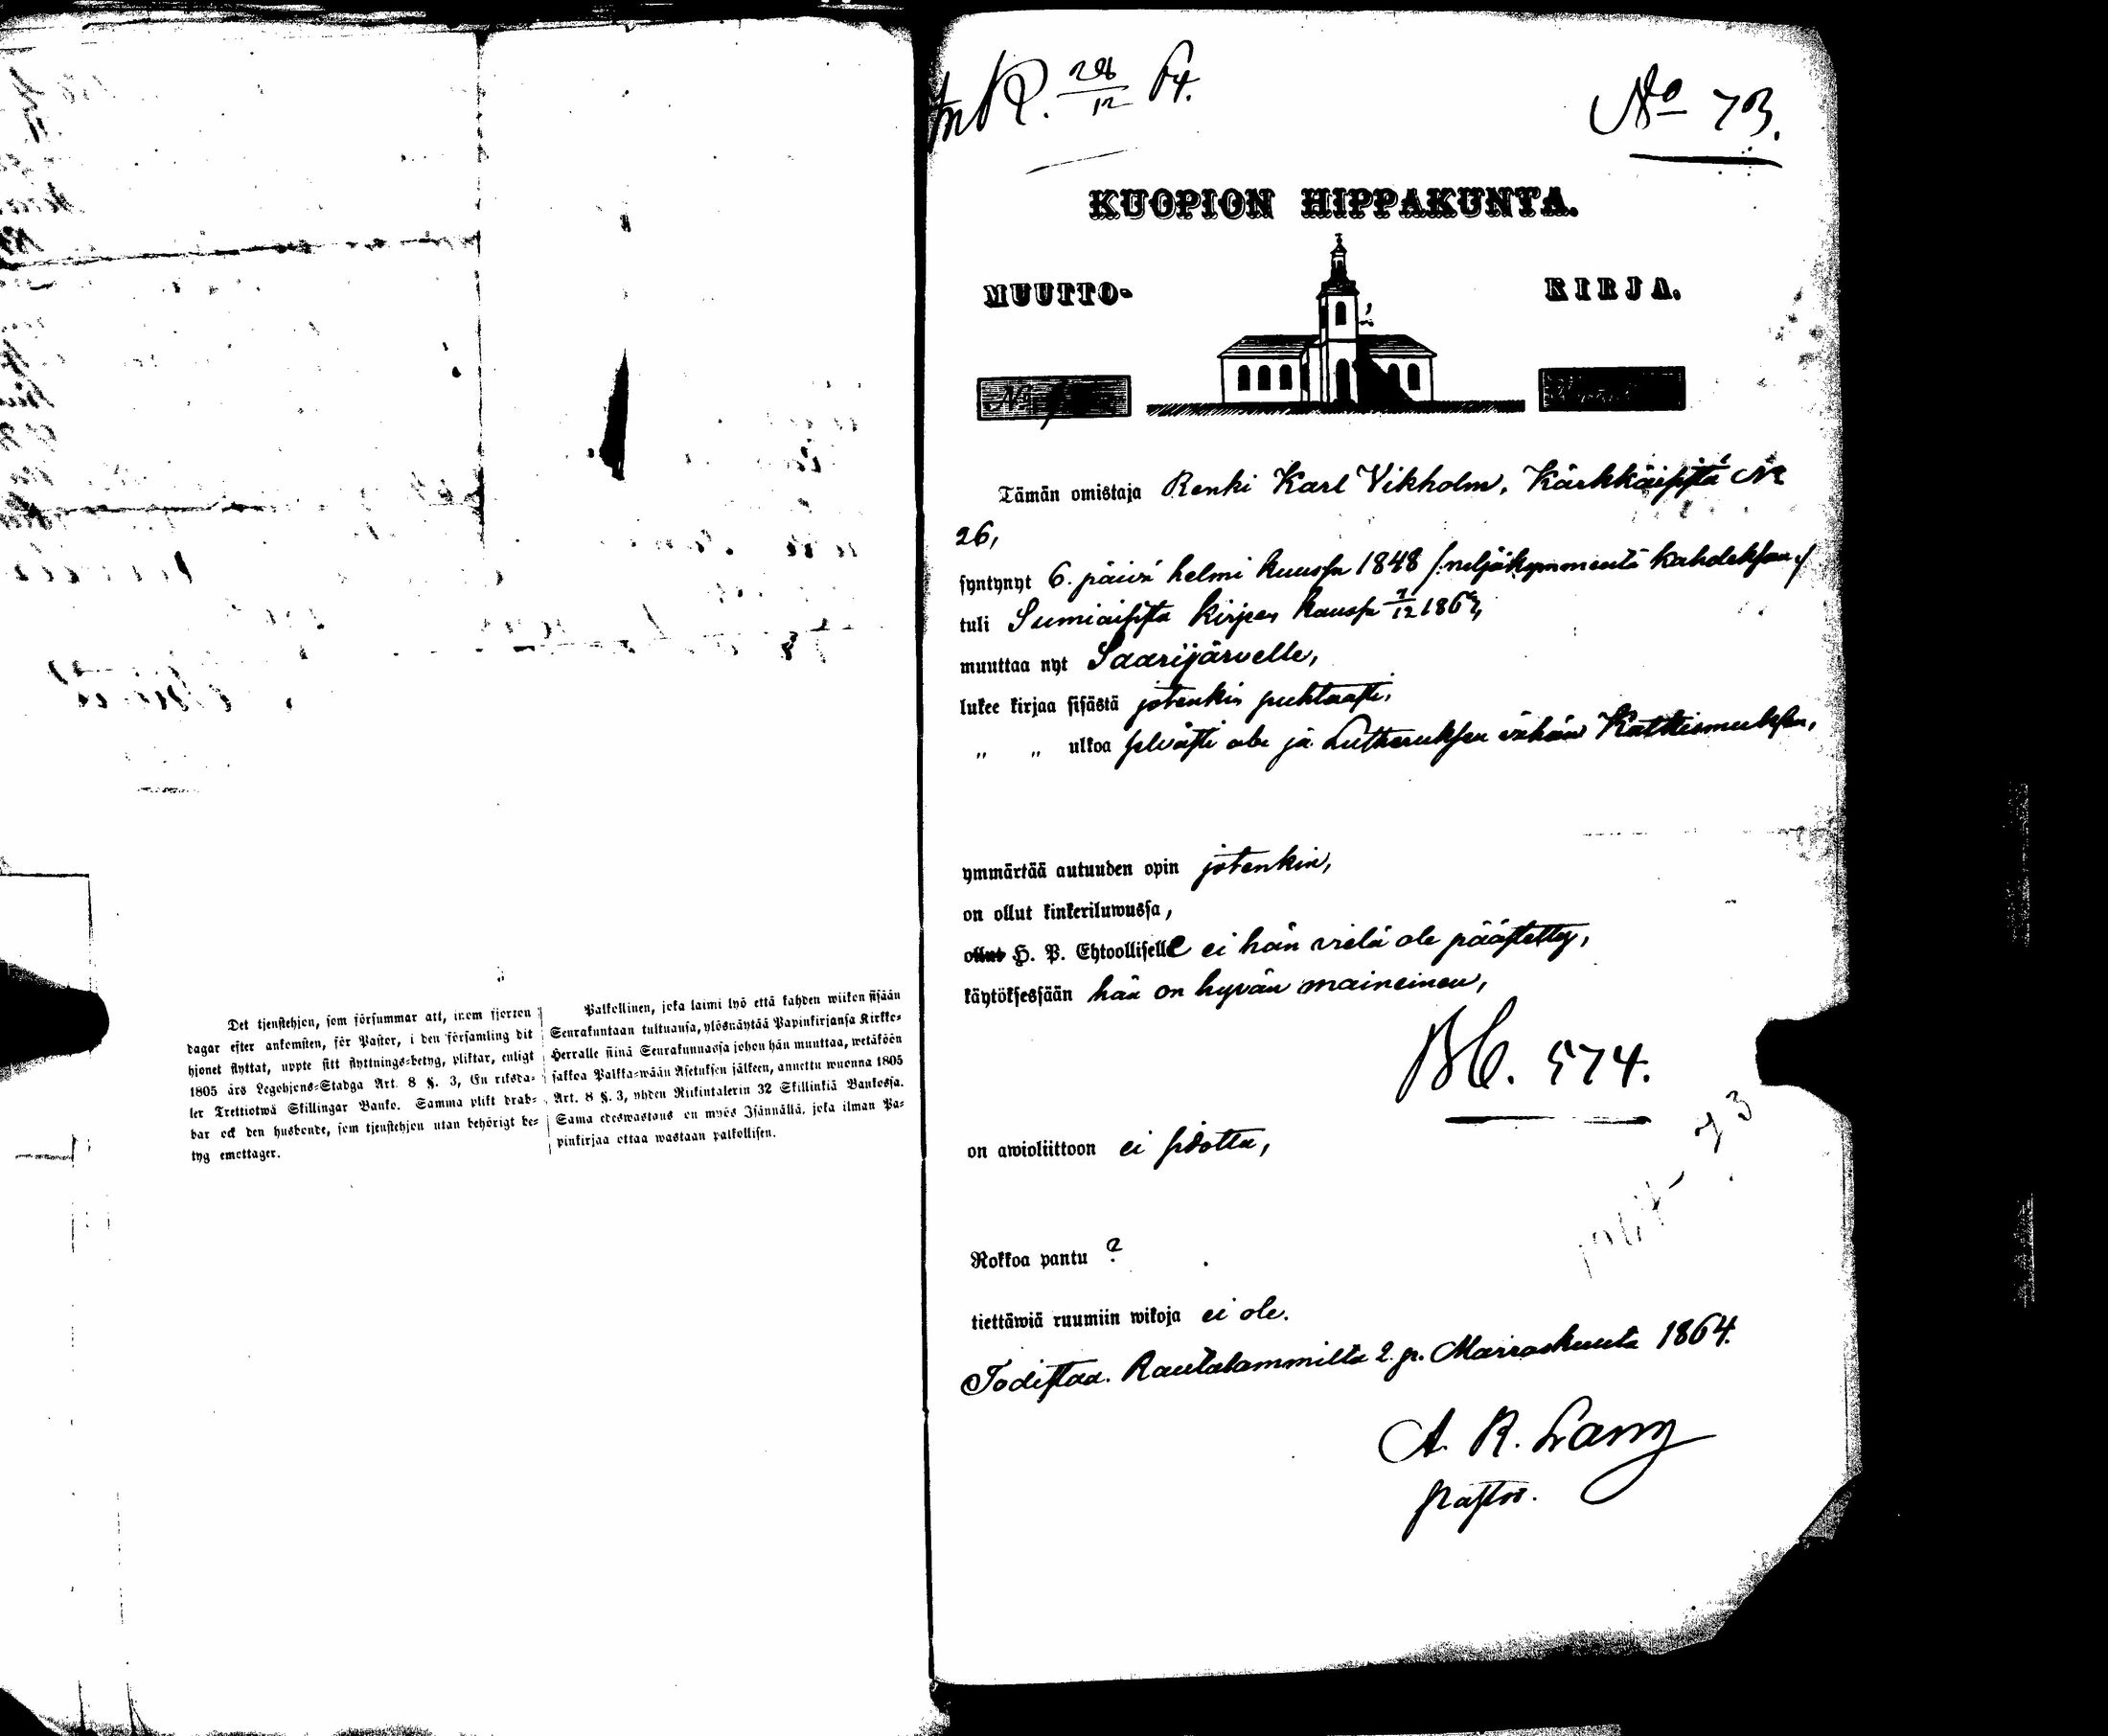 Det tjenstehjon, som försummar att, inom fjorton
dagar efter ankomsten, för Pastor, i den församling dit
hjonet flyttat, uppte sitt flyttnings-betyg, pliktar, enligt
1805 års Legohjons-Stadga Art. 8 §. 3, En riksda-
ler Trettiotwå Skillingar Banko. Samma plikt drab-
bar ock den husbonde, som tjenstehjon utan behörigt be-
tyg emottager.
Palkollinen, joka laimi lyö että kahden wiikon sisään
Seurakuntaan tultuansa, ylösnäytää Papinkirjansa Kirkko-
Herralle siinä Seurakunnassa johon hän muuttaa, wetäköön
sakkoa Palkka-wään Asetuksen jälkeen, annettu wuonna 1805
Art. 8 §. 3, yhden Riikintalerin 32 Skillinkiä Bankossa.
Sama edeswastaus on myös Isännällä, joka ilman Pa-
pinkirjaa ottaa wastaan palkollisen.
R. 28/12 64.
No 73.
KUOPION HIPPAKUNTA.
MUUTTO- KIRJA.
Tämän omistaja Renki Karl Vikholm, Kärkkäisstä No
26,
syntynyt 6. päivä helmi kuussa 1848 /: neljäkymmentä kahdeksan :/
tuli Sumiaissta kirjan kanssa
muuttaa nyt Saarijärvelle,
lukee kirjaa sisästä jotenkin puhtaasti,
„ „ ulkoa selvästi abc ja Lutheruksen vähän Katkismuksen,
ymmärtää autuuden opin jotenkin,
on ollut kinkeriluwussa,
ollut H. P. Ehtoolliselle ei hän vielä ole päästetty,
käytöksessään hän on hyvän maineinen,
574.
on awioliittoon ei sidottu,
Rokkoa pantu ?
tiettäwiä ruumiin wikoja ei ole.
Todistaa. Rautalammilta 2 p. Marraskuuta 1864.
A. R. Lang
Pastor.